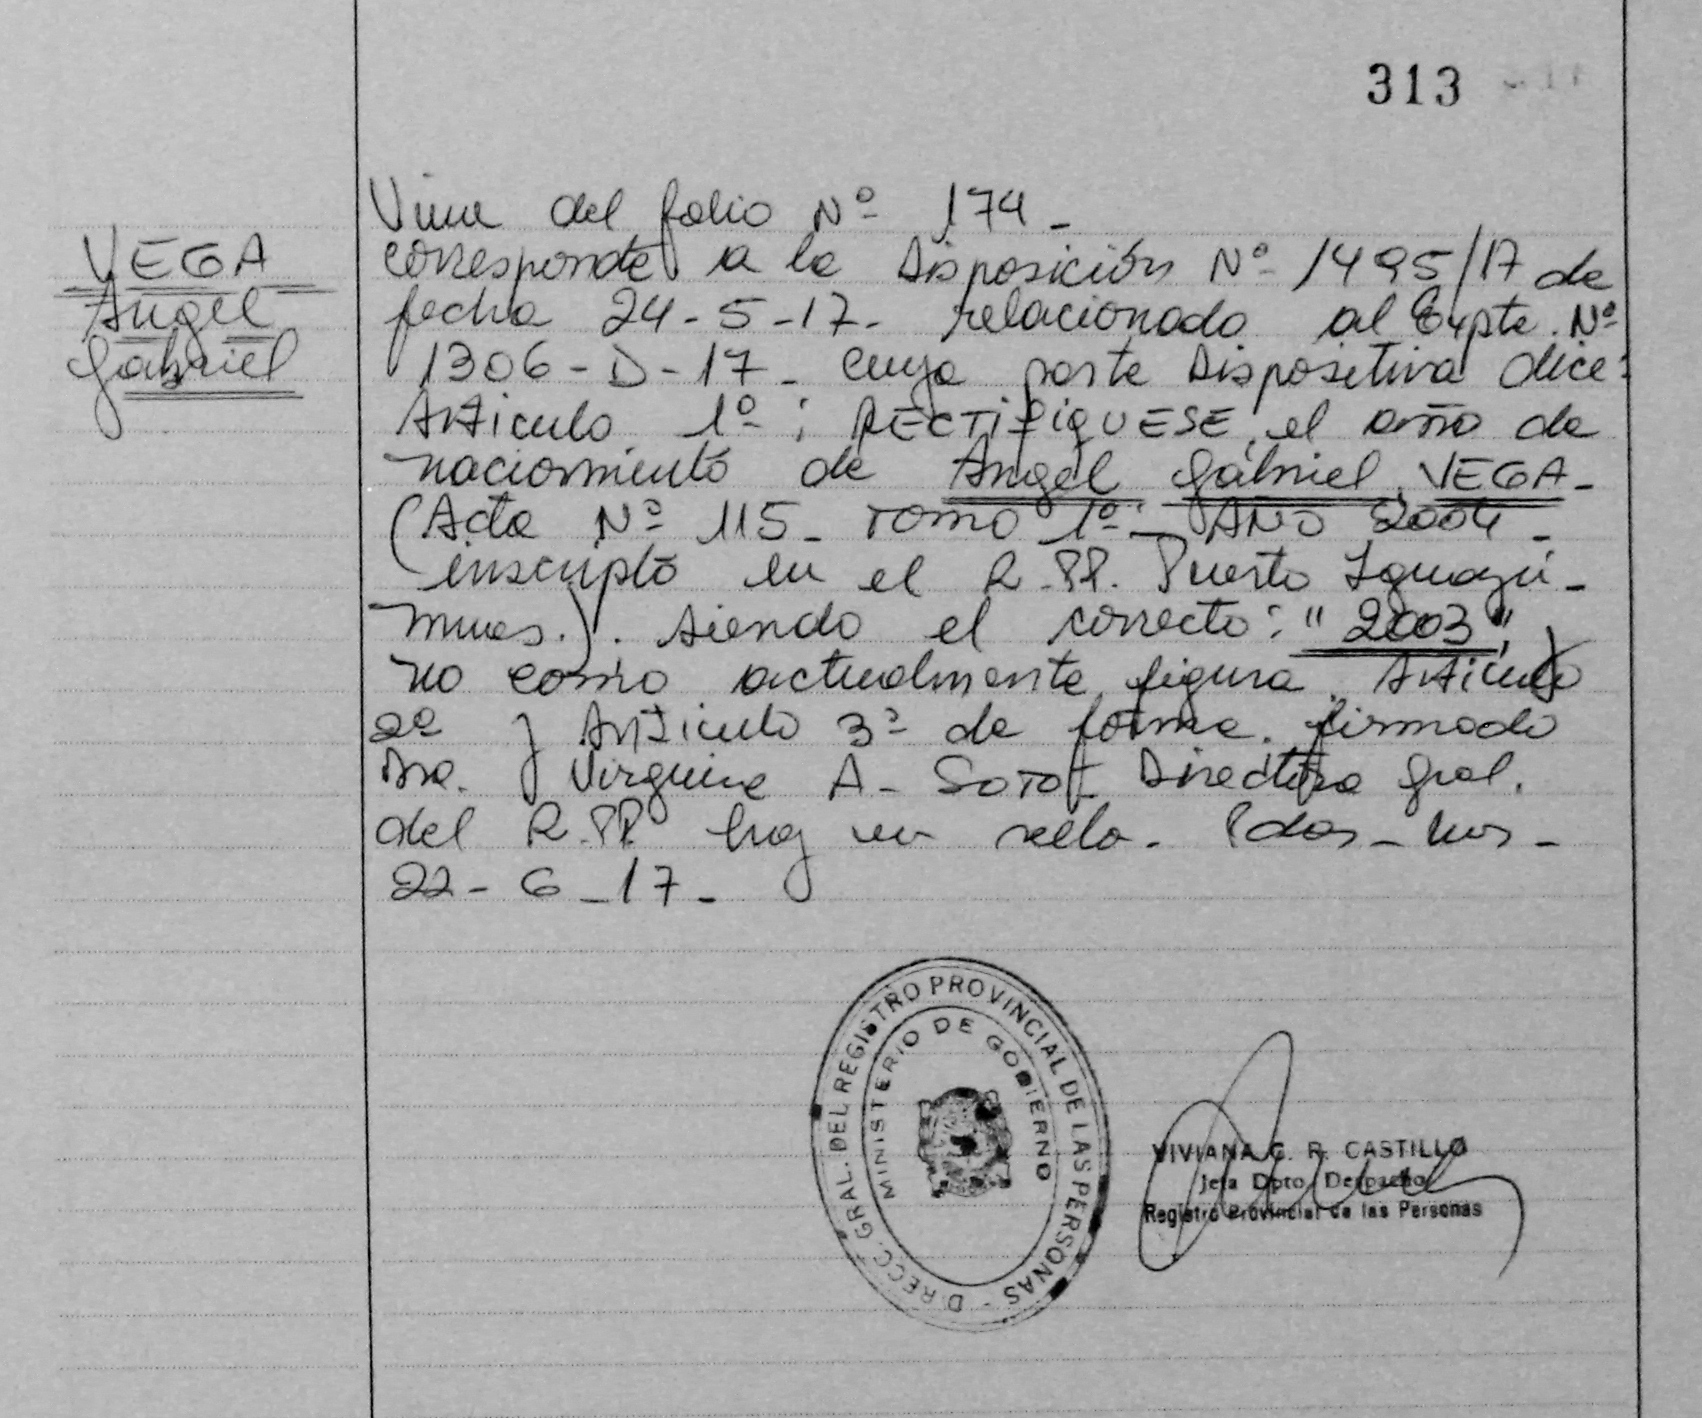 313
VEGA
Angel
Gabriel
Viene del folio Nº 174 -
corresponde a la Disposición Nº 1495/17 de
fecha 24-5-17- relacionado al Expte. Nº
1306-D-17- cuya parte Dispositiva dice:
Articulo 1º: RECTIFIQUESE, el año de
nacimiento de Angel Gabriel VEGA-
(Acta Nº 115- Tomo 1º- AÑO 2004-
inscripto en el R.PP. Puerto Iguazú-
Mnes.). siendo el correcto: "2003" y
no como actualmente figura. Articulo
2º y Articulo 3º de forma. firmado
Dra. Virginia A- SOTO- Directora Gral.
del R.PP hay un sello. Pdas- Mns-
22-6-17-
DIRECC. GRAL. DEL REGISTRO PROVINCIAL DE LAS PERSONAS -
MINISTERIO DE GOBIERNO
VIVIANA G. R. CASTILLO
Jefa Dpto. Despacho
Registro Provincial de las Personas